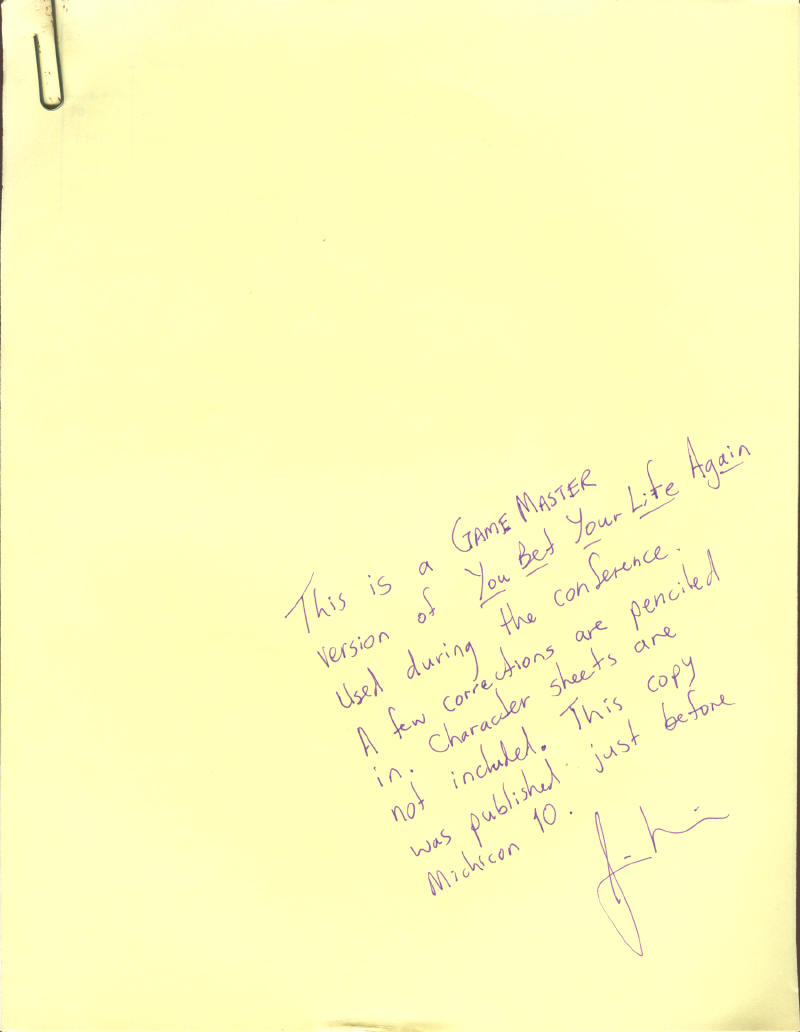 This is a GAME MASTER
version of You Bet Your Life Again
used during the conference.
A few corrections are penciled
in. Character sheets are
not included. This copy
was published just before
Michicon 10.